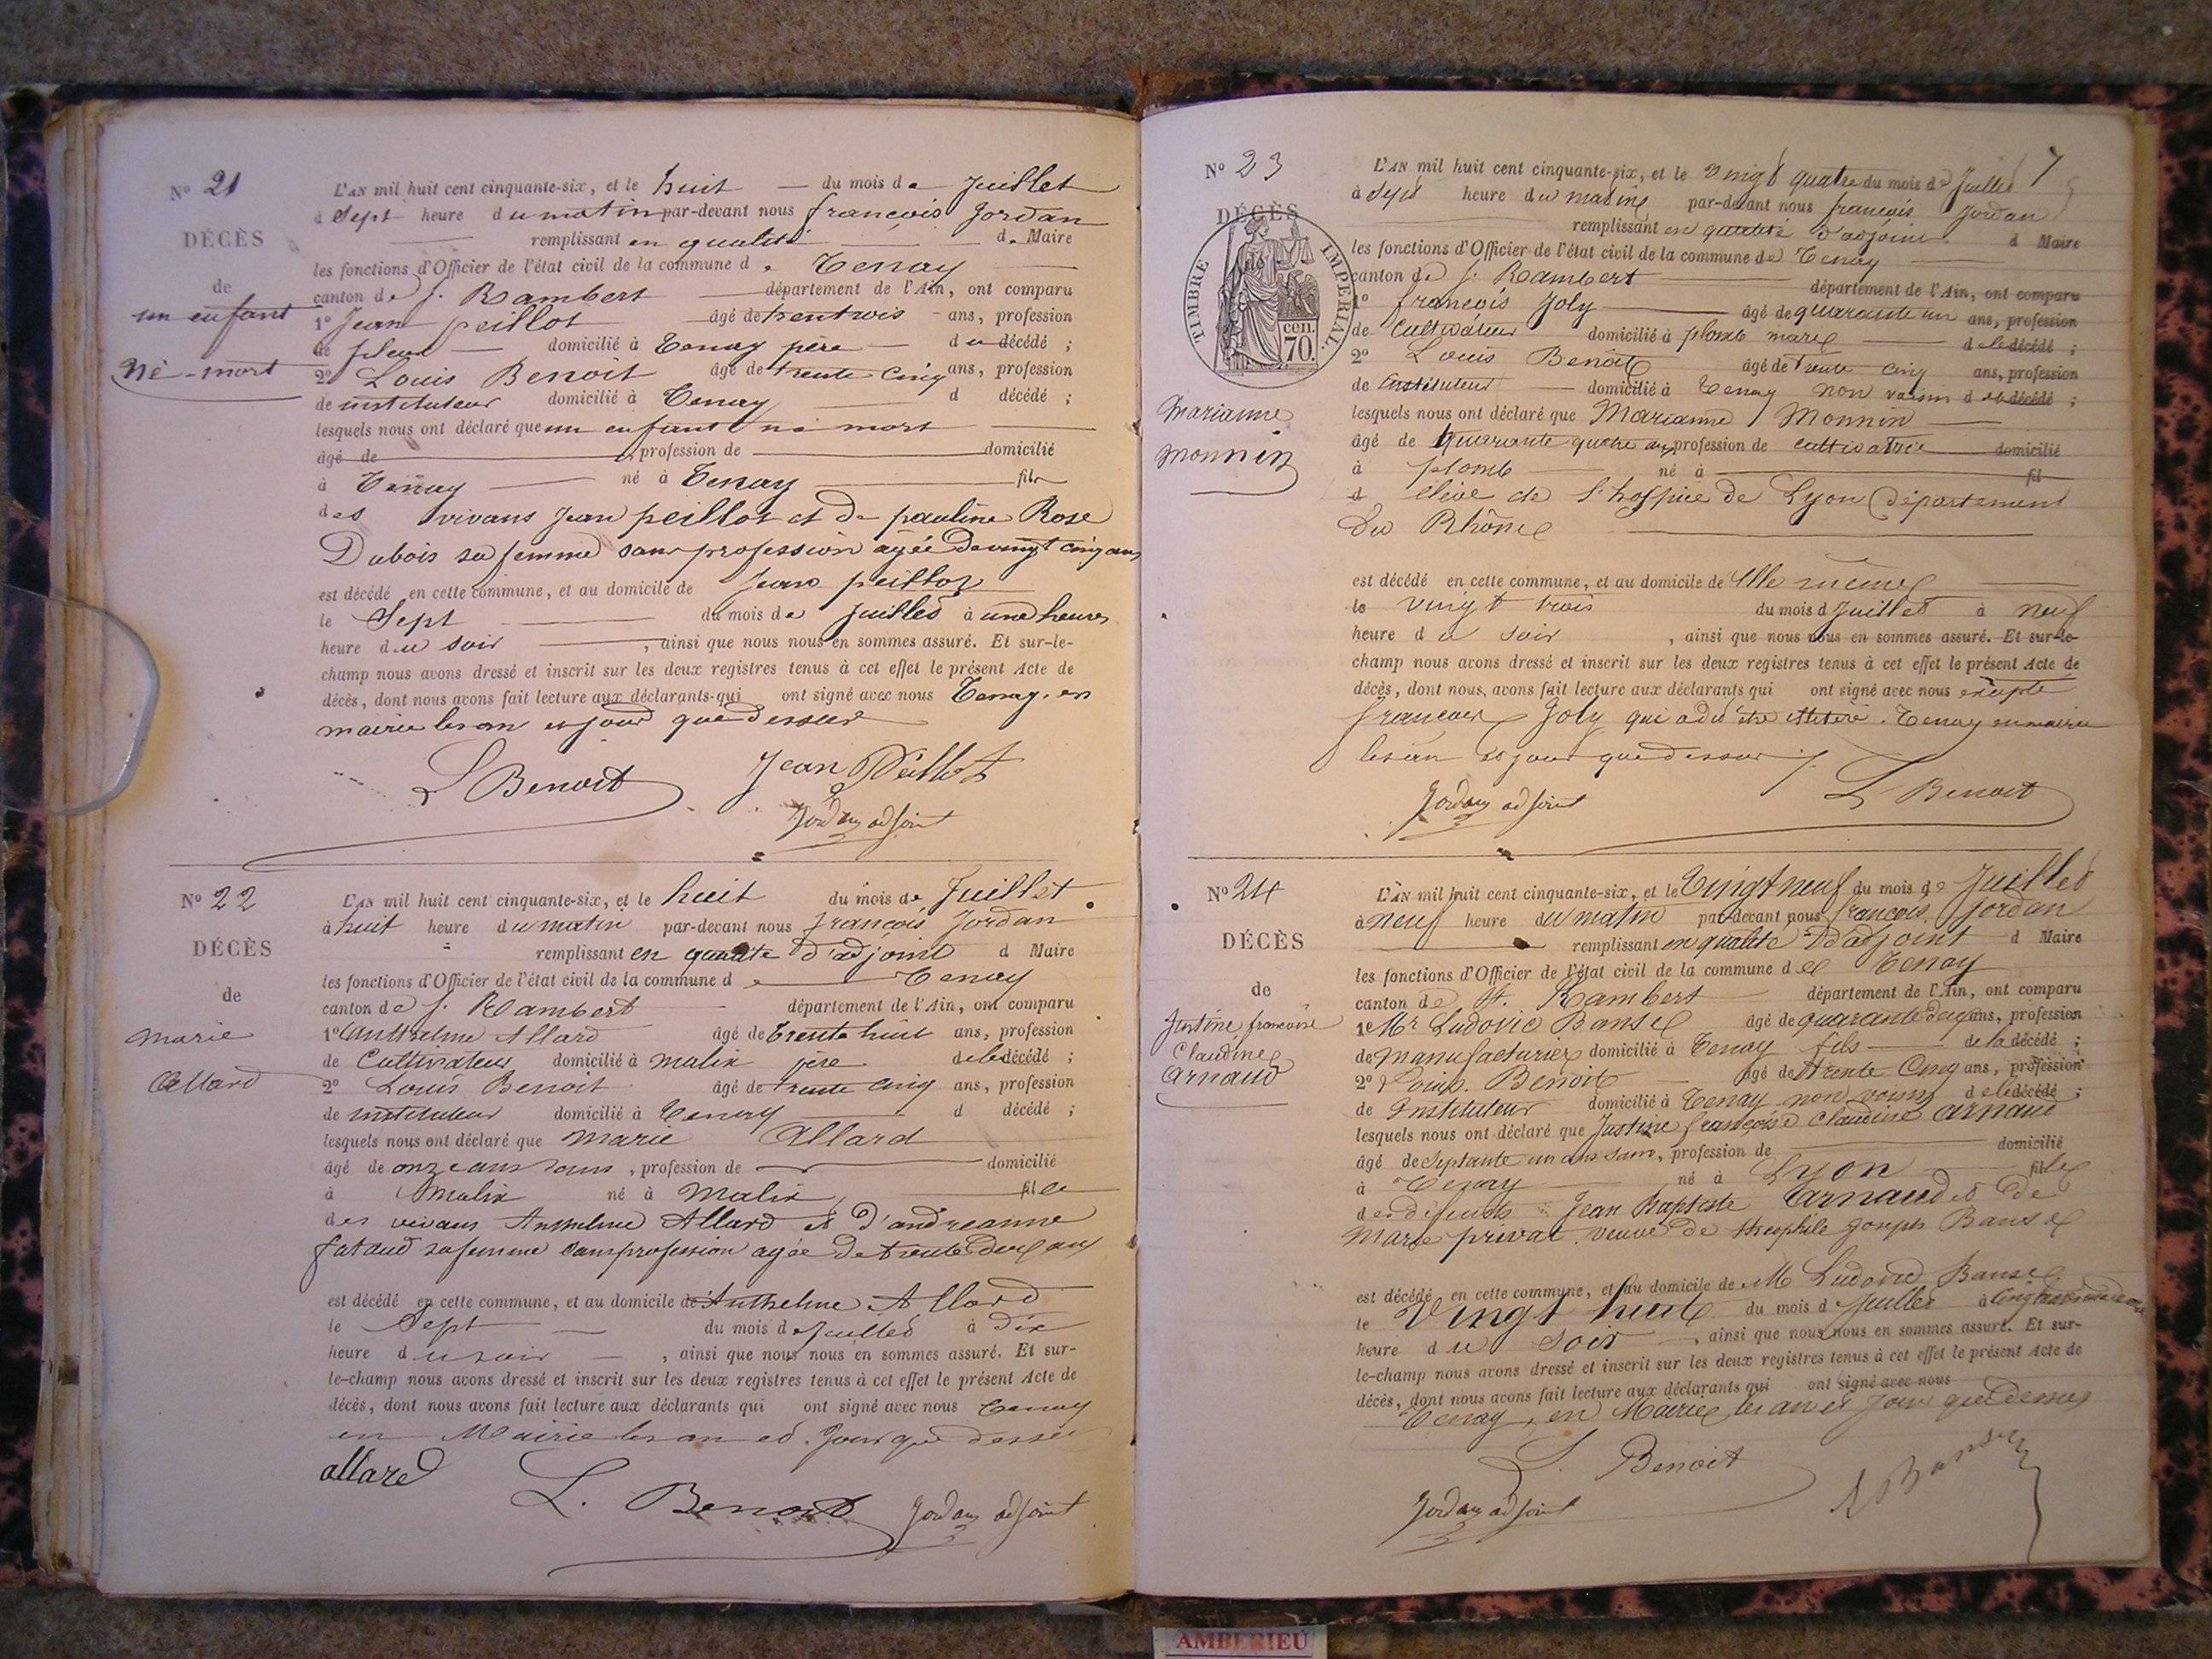 N° 21
DÉCÈS
de
un enfant
né-mort
L'AN mil huit cent cinquante-six, et le huit du mois de Juillet
à Sept heure du matin par-devant nous françois Jordan
remplissant en qualité d. Maire
les fonctions d'Officier de l'état civil de la commune de Tenay
canton de S. Rambert département de l'Ain, ont comparu
1° Jean peillot âgé de trentrois ans, profession
de fileur domicilié à Tenay père du décédé ;
2° Louis Benoit âgé de trente cinq ans, profession
de instituteur domicilié à Tenay d décédé ;
lesquels nous ont déclaré que un enfant né mort
âgé de , profession de domicilié
à Tenay né à Tenay fils
des vivans Jean peillot et de pauline Rose
Dubois sa femme sans profession agée de vingt cinq ans
est décédé en cette commune, et au domicile de Jean peillot
le Sept du mois de Juillet à une heure
heure du soir , ainsi que nous nous en sommes assuré. Et sur-le-
champ nous avons dressé et inscrit sur les deux registres tenus à cet effet le présent Acte de
décès, dont nous avons fait lecture aux déclarants qui ont signé avec nous Tenay. en
mairie les an et jour que dessus
L Benoit Jean Peillot
Jordan adjoint
N° 22
DÉCÈS
de
marie
Allard
L'AN mil huit cent cinquante-six, et le huit du mois de Juillet
à huit heure du matin par-devant nous françois Jordan
remplissant en qualité d'adjoint d Maire
les fonctions d'Officier de l'état civil de la commune d Tenay
canton de S. Rambert département de l'Ain, ont comparu
1° Anthelme Allard âgé de trente huit ans, profession
de Cultivateur domicilié à malix père de le décédé ;
2° Louis Benoit âgé de trente cinq ans, profession
de instituteur domicilié à Tenay d décédé ;
lesquels nous ont déclaré que marie Allard
âgé de onze ans sans , profession de domicilié
à Malix né à Malix fille
des vivans Anthelme Allard et d'andreanne
fataud sa femme sans profession agée de trente deux ans
est décédé en cette commune, et au domicile de Anthelme Allard
le Sept du mois de Juillet à dix
heure du soir , ainsi que nous nous en sommes assuré. Et sur-
le-champ nous avons dressé et inscrit sur les deux registres tenus à cet effet le présent Acte de
décès, dont nous avons fait lecture aux déclarants qui ont signé avec nous Tenay
en Mairie les an et Jour que dessus
allard L. Benoit Jordan adjoint
7
N° 23
DÉCÈS
TIMBRE IMPERIAL
70. cen.
Marianne
Monnin
L'AN mil huit cent cinquante-six, et le vingt quatre du mois de Juillet
à Sept heure du matin par-devant nous françois Jordan
remplissant en qualité d'adjoint d Maire
les fonctions d'Officier de l'état civil de la commune de Tenay
canton de S. Rambert département de l'Ain, ont comparu
1° françois Joly âgé de quarante un ans, profession
de Cultivateur domicilié à plomb mari de le décédé ;
2° Louis Benoit âgé de trente cinq ans, profession
de instituteur domicilié à Tenay non voisin d décédé ;
lesquels nous ont déclaré que Marianne Monnin
âgé de quarante quatre ans profession de cultivatrice domicilié
à plomb né à fil
d élève de l'hospice de Lyon (département
Du Rhône
est décédé en cette commune, et au domicile de Elle même
le vingt trois du mois d Juillet à neuf
heure du soir , ainsi que nous nous en sommes assuré. Et sur-le-
champ nous avons dressé et inscrit sur les deux registres tenus à cet effet le présent Acte de
décès, dont nous avons fait lecture aux déclarants qui ont signé avec nous excepté
françois Joly qui a dit être illitéré. Tenay en mairie
les an et jour que dessus
Jordan adjoint L Benoit
N° 24
DÉCÈS
de
Justine françoise
Claudine
Arnaud
L'AN mil huit cent cinquante-six, et le Vingt neuf du mois de Juillet
à neuf heure du matin par-devant nous françois Jordan
remplissant en qualité D'adjoint d Maire
les fonctions d'Officier de l'état civil de la commune de Tenay
canton de St. Rambert département de l'Ain, ont comparu
1° Mr Ludovic Bansel âgé de quarante deux ans, profession
de manufacturier domicilié à Tenay fils de la décédé ;
2° Louis Benoit âgé de trente Cinq ans, profession
de Instituteur domicilié à Tenay non voisin de le décédé ;
lesquels nous ont déclaré que Justine françoise Claudine Arnaud
âgé de Septante un ans sans, profession de domicilié
à Tenay né à Lyon fille
des défunts Jean Baptiste Arnaud et de
Marie privat veuve de théophile Joseph Bansel
est décédé en cette commune, et au domicile de M Ludovic Bansel
le Vingt huit du mois d Juillet à Cinq
heure du Soir , ainsi que nous nous en sommes assuré. Et sur-
le-champ nous avons dressé et inscrit sur les deux registres tenus à cet effet le présent Acte de
décès, dont nous avons fait lecture aux déclarants qui ont signé avec nous
Tenay, en Mairie, les an et Jour que Dessus
L. Benoit
Jordan adjoint L Bansel
AMBERIEU